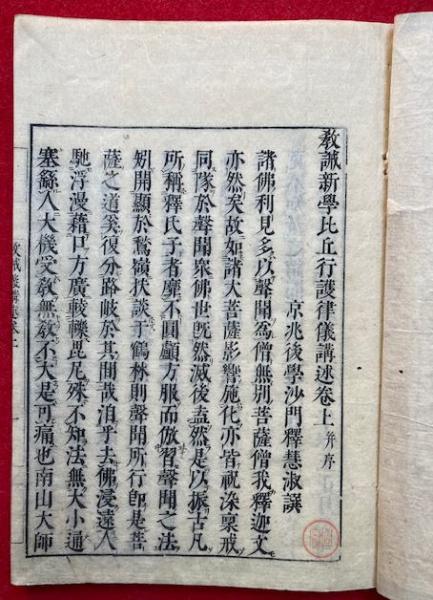 敎誡新學比丘行護律儀講述卷上 并序
京兆後學沙門釋慧淑譔
諸佛利見多以聲聞爲僧無別菩薩僧我釋迦文
亦然矣故如諸大菩薩影響施化亦皆祝染稟戒
同隊於聲聞衆佛世旣然滅後盍然是以振古凡
所稱釋氏子者靡不圓顱方服而倣習聲聞之法
矧開顯於鷲嶺扶談于鶴林則聲聞所行卽是菩
薩之道奚復分路岐於其間哉洎乎去佛浸遠人
馳浮漫藉口方廣轢毘尼殊不知法無大小通
塞繇人大機受敎無敎不大是可痛也南山大師